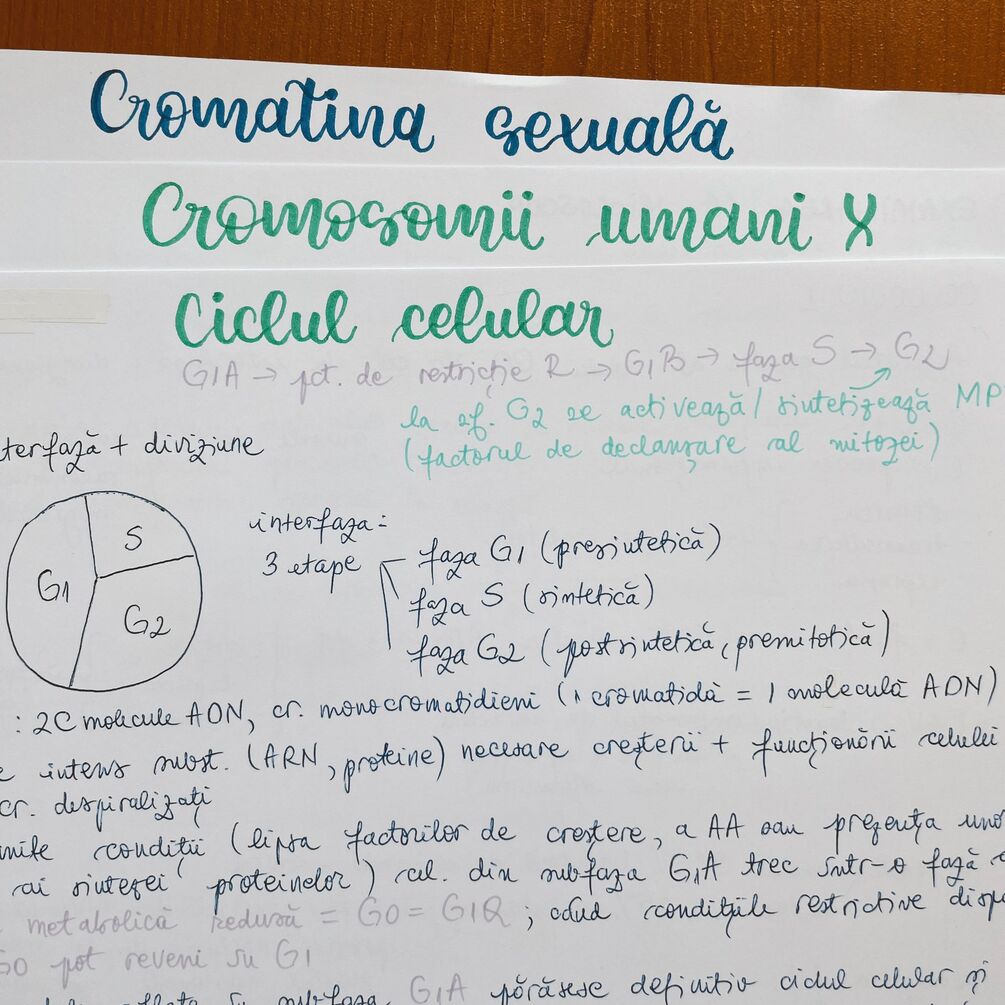 Cromatina sexuală
Cromosomii umani X
Ciclul celular
G1A → pct. de restricție R → G1B → faza S → G2
la sf. G2 se activează/sintetizează MP
(factorul de declanșare al mitozei)
terfază + diviziune
S
G1
G2
interfaza:
3 etape
faza G1 (presintetică)
faza S (sintetică)
faza G2 (postsintetică, premitotică)
: 2C molecule ADN, cr. monocromatidieni (1 cromatidă = 1 moleculă ADN)
e intens subst. (ARN, proteine) necesare creșterii + funcționării celulei
cr. despiralizați
mite condiții (lipsa factorilor de creștere, a AA sau prezența unor
ai sintezei proteinelor) cel. din subfaza G1A trec într-o fază
metabolică redusă = G0 = G1Q ; când condițiile restrictive disp
G0 pot reveni în G1
subfaza G1A părăsesc definitiv ciclul celular și